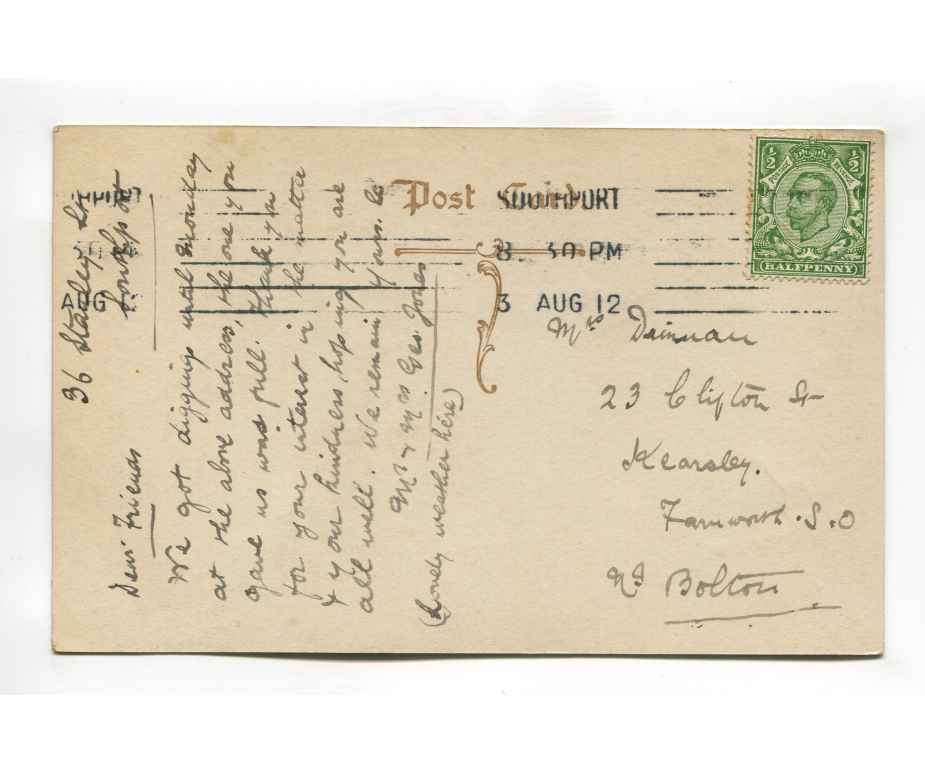 Post Card
SOUTHPORT
8. 30 PM
3 AUG 12
AUG 1
½ ½
POSTAGE REVENUE
HALFPENNY
36 Stanley St
Southport
Dear Friends
We got digging until Monday
at the above address, the one you
gave us was full. Thank you
for your interest in the matter
& your kindness, hoping you are
all well. We remain Yours &c
Mr & Mrs Geo. Jones
(Lovely weather here)
Mrs
23 Clifton St
Kearsley.
Farnworth. S.O
Nr Bolton